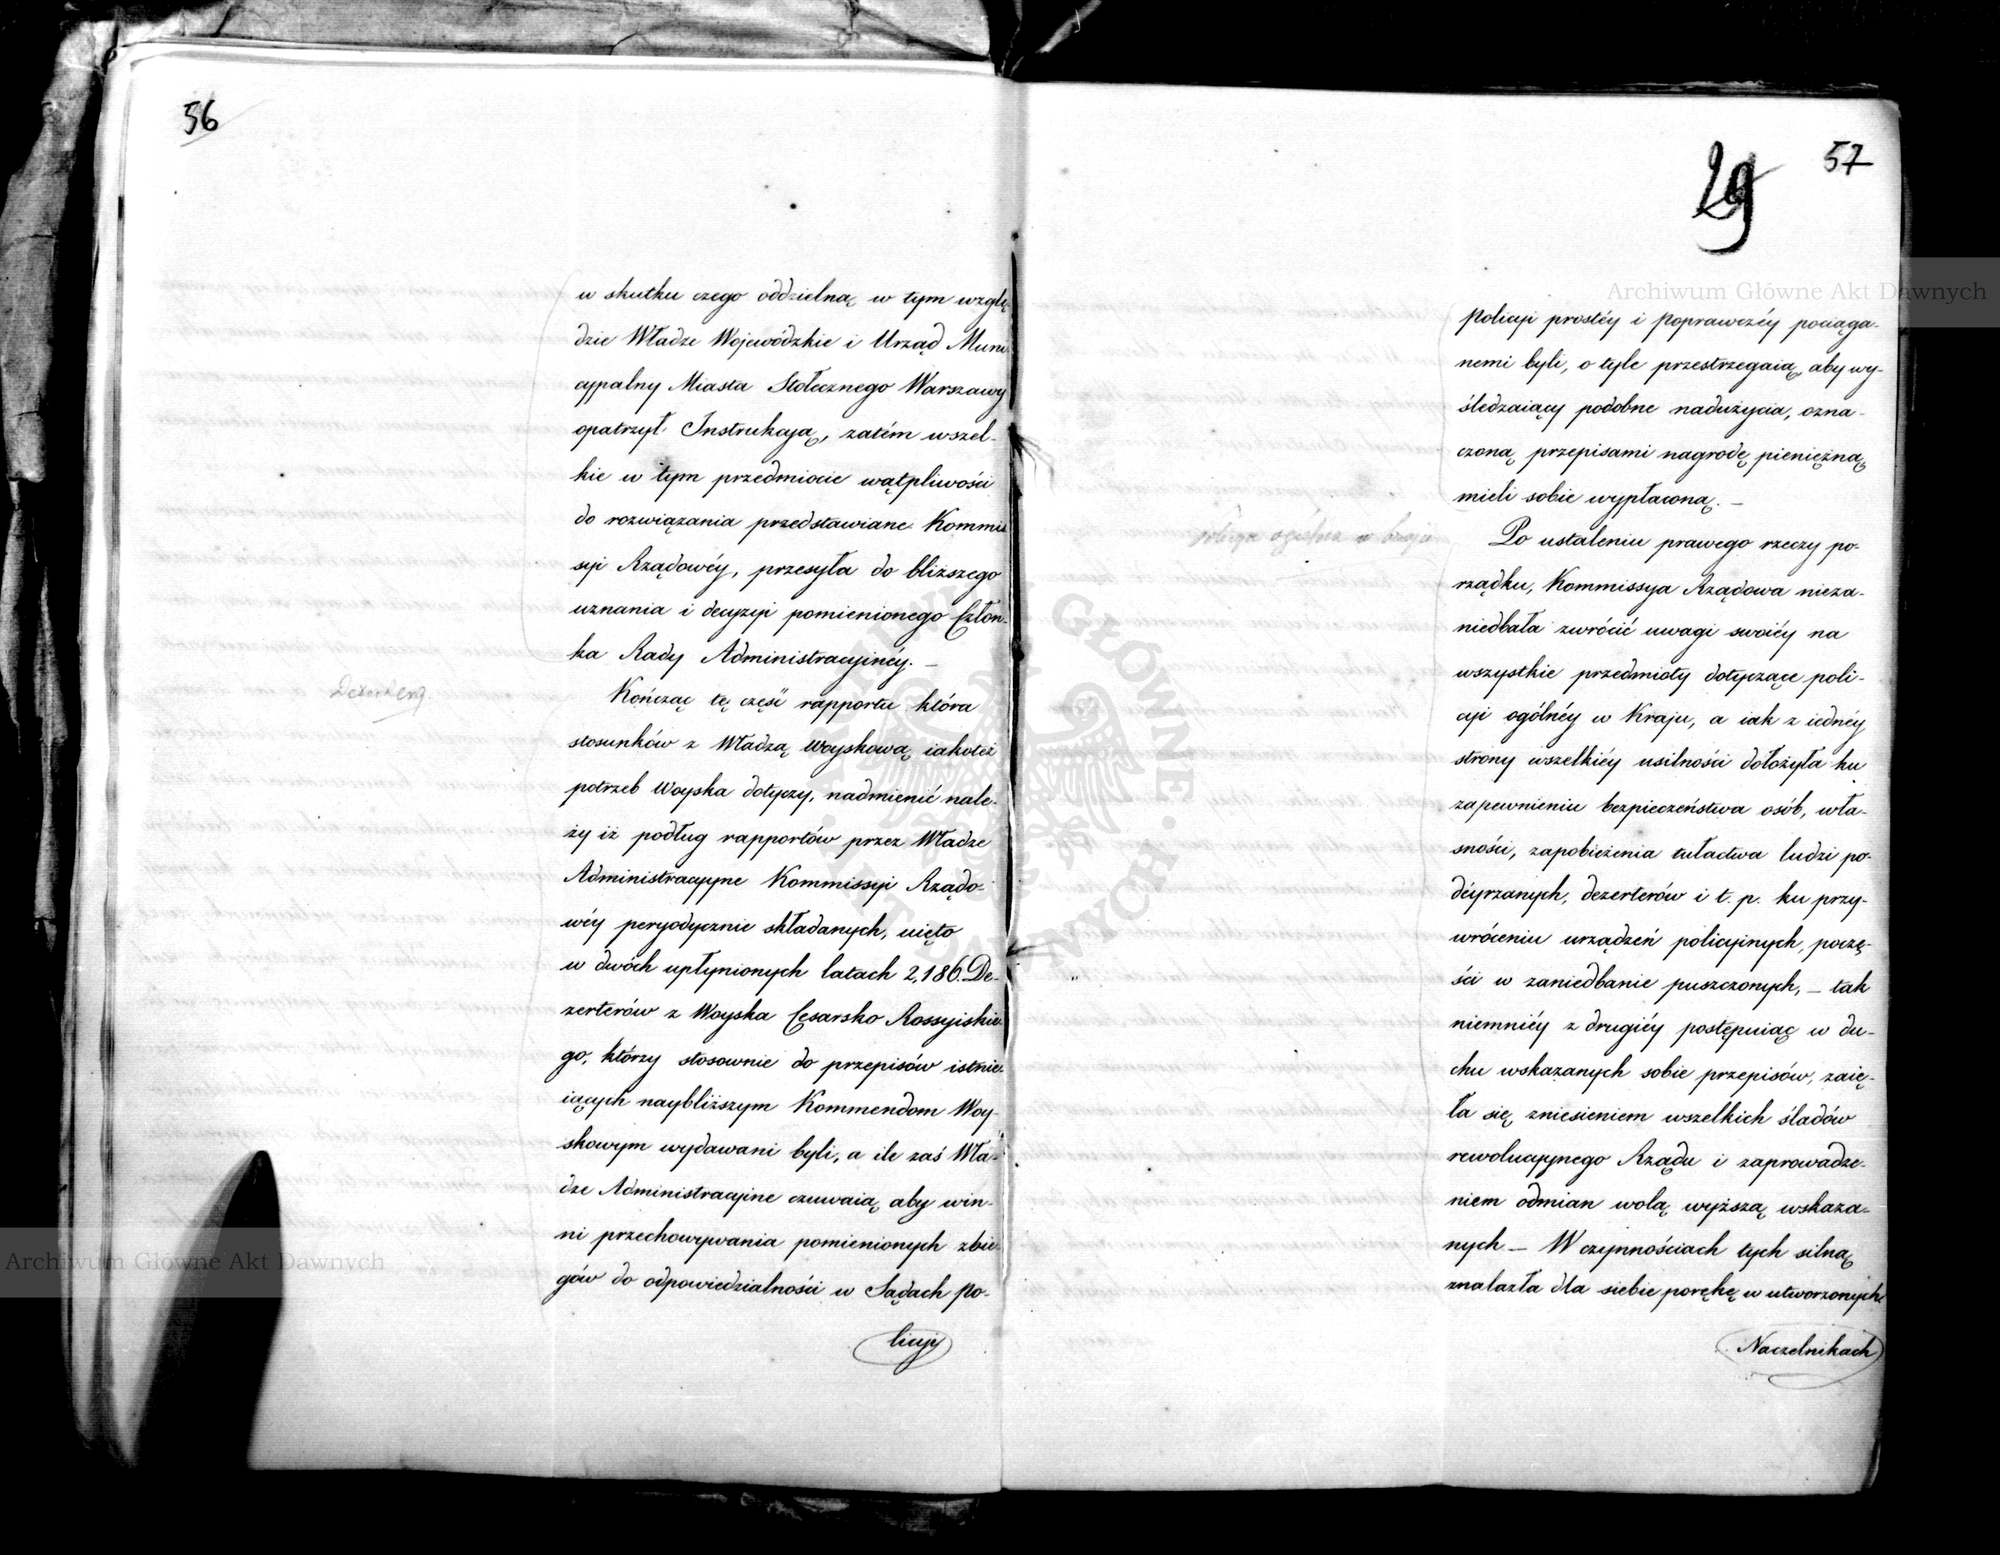 56
w skutku czego oddzielną w tym wzglę-
dzie Władze Wojewódzkie i Urząd Muni
cypalny Miasta Stołecznego Warszawy
opatrzył Instrukcyą, zatém wszel-
kie w tym przedmiocie wątpliwości
do rozwiązania przedstawiane Kommis
syi Rządowéy, przesyła do bliższego
uznania i decyzyi pomienionego Człon-
ka Rady Administracyinéy. —
Kończąc tę część rapportu która
stosunków z Władzą Woyskową iakoteż
potrzeb Woyska dotyczy, nadmienić nale-
ży iż podług rapportów przez Władze
Administracyyne Kommissyi Rządo-
wéy peryodycznie składanych, uięto
w dwóch upłynionych latach 2,186. De-
zerterów z Woyska Cesarsko Rossyiskie-
go, którzy stosownie do przepisów istnie-
iących naybliższym Kommendom Woy-
skowym wydawani byli, a ile zaś Wła-
dze Administracyine czuwaią aby win-
ni przechowywania pomienionych zbie-
gów do odpowiedzialności w Sądach Po-
licyi
57
29
Policyi prostéy i Poprawczéy pociąga-
nemi byli, o tyle przestrzegaią, aby wy-
śledzaiący podobne nadużycia, ozna-
czoną przepisami nagrodę pieniężną
mieli sobie wypłaconą. —
Policya ogólna w kraju
Po ustaleniu prawego rzeczy po-
rządku, Kommissya Rządowa nieza-
niedbała zwrócić uwagi swoiéy na
wszystkie przedmioty dotyczące poli-
cyi ogólnéy w Kraju, a iak z iednéy
strony wszelkiéy usilności dołożyła ku
zapewnieniu bezpieczeństwa osób, wła-
sności, zapobieżenia tułactwa ludzi po-
déyrzanych, dezerterów i t. p. ku przy-
wróceniu urządzeń policyinych, poczę-
ści w zaniedbanie puszczonych, — tak
niemniéy z drugiéy postępuiąc w du-
chu wskazanych sobie przepisów, zaię-
ła się zniesieniem wszelkich śladów
rewolucyynego Rządu i zaprowadze-
niem odmian wolą wyższą wskaza-
nych — W czynnościach tych silną
znalazła dla siebie porękę w utworzonych
Naczelnikach
Archiwum Główne Akt Dawnych
Archiwum Główne Akt Dawnych
ARCHIWUM GŁÓWNE AKT DAWNYCH